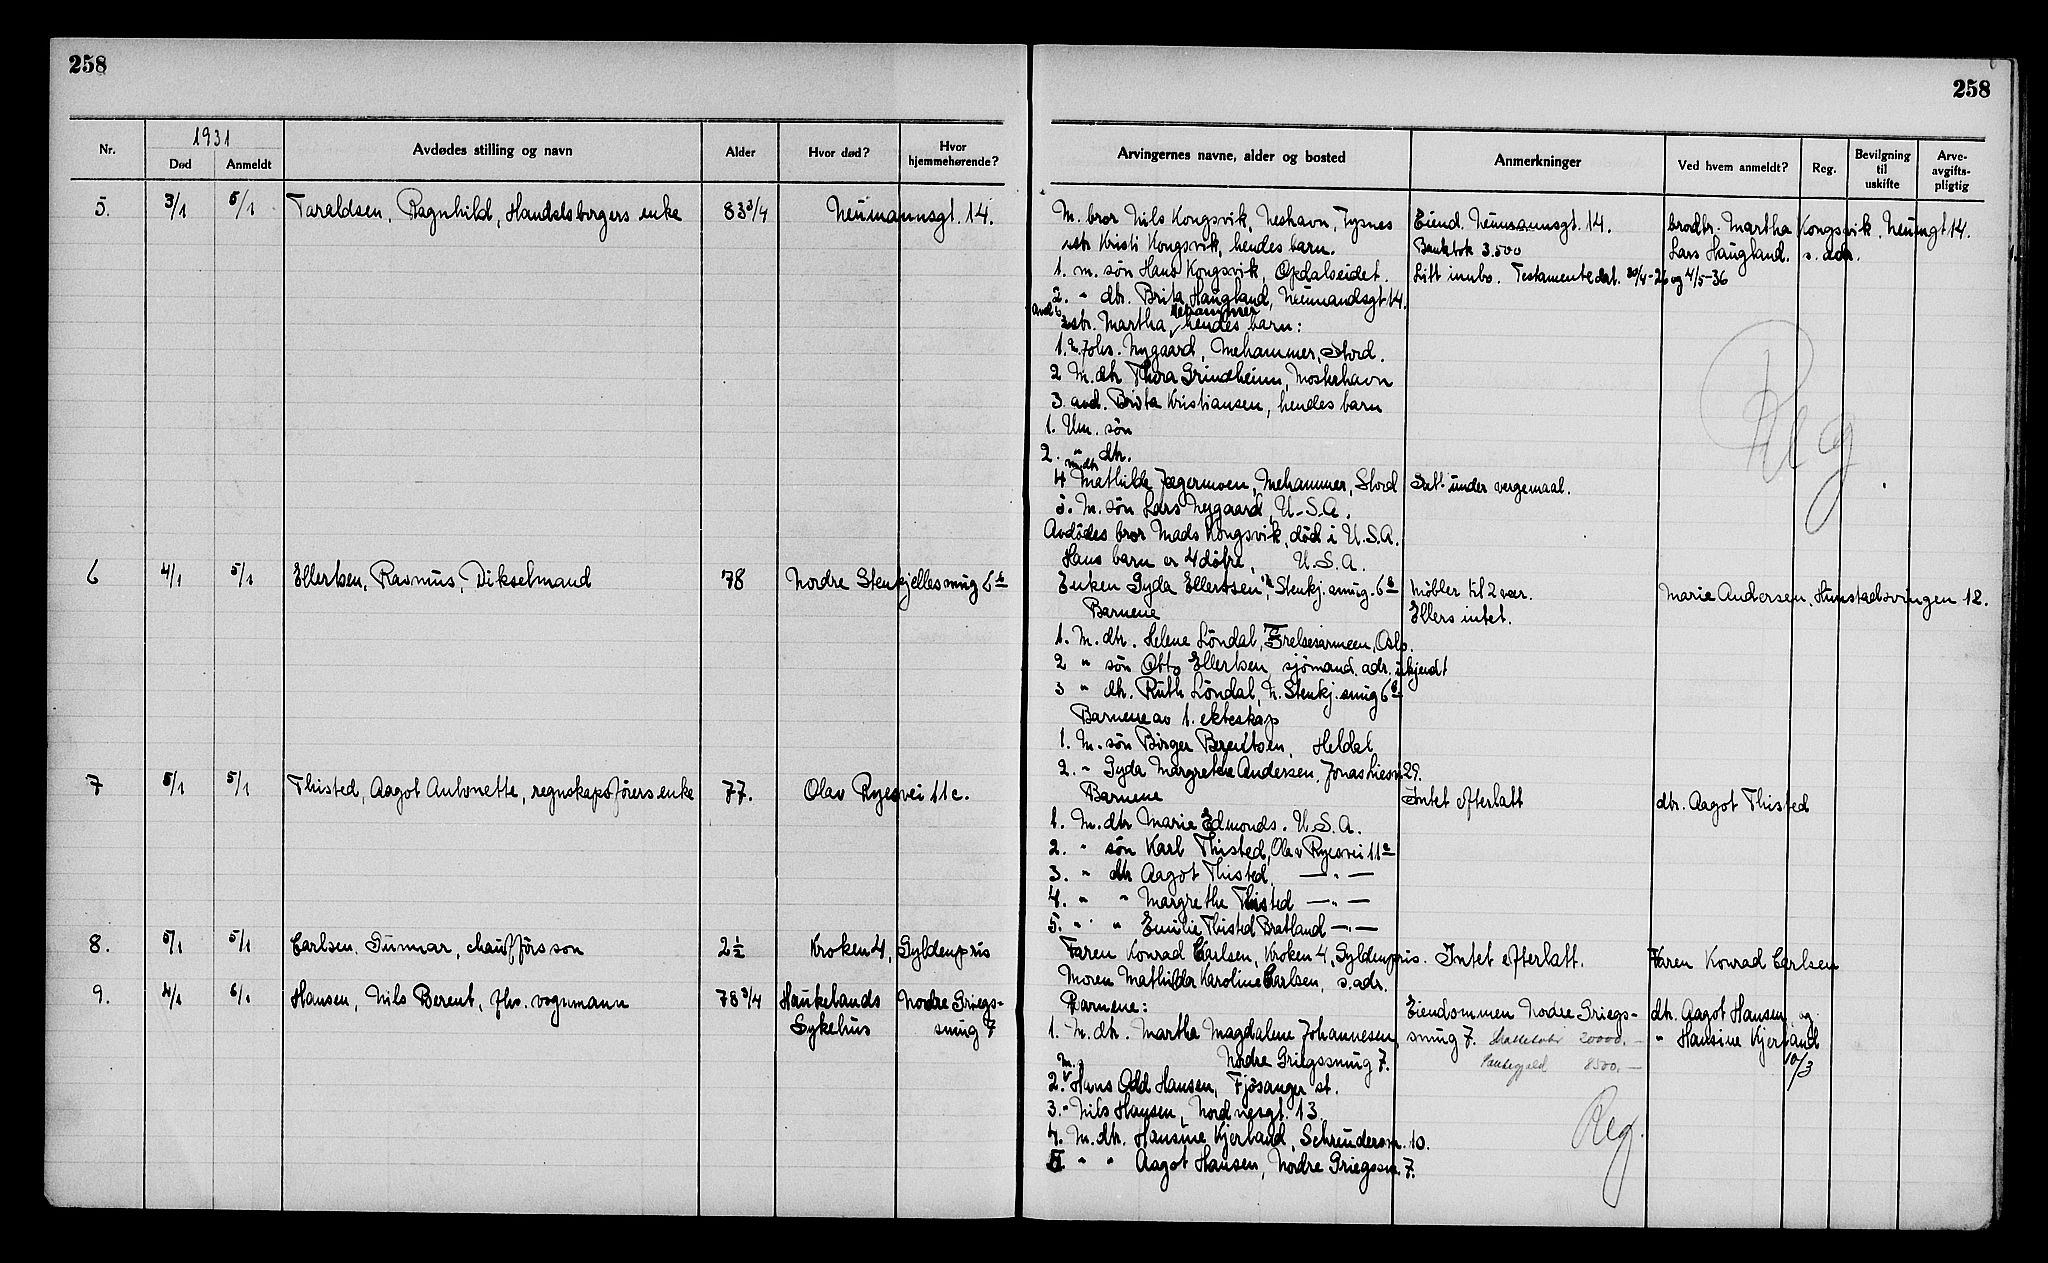 258
258
1931
Nr.
Død
Anmeldt
Avdødes stilling og navn
Alder
Hvor død?
Hvor hjemmehørende?
Arvingernes navne, alder og bosted
Anmerkninger
Ved hvem anmeldt?
Reg.
Bevilgning til uskifte
Arve-avgifts-pligtig
5. 3/1 5/1 Taraldsen, Ragnhild, Handelsborgers enke 83 3/4 Neumannsgt. 14.
M. bror Nils Kongsvik, Neshavn, Tysnes
Eiend. Neumannsgt. 14.
brodtr. Martha Kongsvik, Neumgt 14.
str Kristi Kongsvik, hendes barn.
Bankbok 3.500
Lars Haugland. s. adr.
1. m. søn Hans Kongsvik, Opdalseidet.
Litt innbo. Testamente dat. 30/4-26 og 4/5-36
2. " dtr. Brita Haugland, Neumandsgt 14.
avd. str. Martha, Mehammer hendes barn:
1. Johs. Nygaard, Mehammer, Stord.
2 M. dtr Thora Grindheim, Mosterhavn
3. avd. Brita Kristiansen, hendes barn
1. Um. søn
2. " dtr.
Reg
4 m. dtr Mathilde Jægermoen, Mehammer, Stord
Satt under vergemaal.
5. M. søn Lars Nygaard, U.S.A.
Avdødes bror Mads Kongsvik, død i U.S.A.
Hans barn er 4 døtre, U.S.A.
6 4/1 5/1 Ellertsen, Rasmus, Dikselmand 78 Nordre Stenkjellesmug 6 b
Enken Gyda Ellertsen, N. Stenkj. smug. 6 b
Møbler til 2 vær.
Marie Andersen, Hunstadsvingen 12.
Barnene
Ellers intet.
1. M. dtr. Helene Løndal, Frelsesarmeen, Oslo.
2 " søn Otto Ellertsen, sjømand. adr. ukjendt
3 " dtr. Ruth Løndal, N. Stenkj. smug 6 b
Barnene av 1. ekteskap
1. M. søn Birger Berentsen, Heldal
2. " Gyda Margrethe Andersen, Jonas Liesv 29.
7 5/1 5/1 Thisted, Aagot Antonette, regnskapsførers enke 77. Olav Ryesvei 11 c.
Barnene
Intet efterlatt
dtr. Aagot Thisted
1. M. dtr Marie Edmonds. U.S.A.
2. " søn Karl Thisted, Olav Ryesvei 11 c
3. " dtr Aagot Thisted — " —
4. " " Margrethe Thisted — " —
5. " " Emilie Thisted Bratland — " —
8. 5/1 5/1 Carlsen, Gunnar, chaufførs søn 2 1/2 Kroken 4, Gyldenpris
Faren Konrad Carlsen, Kroken 4, Gyldenpris.
Intet efterlatt.
Faren Konrad Carlsen
Moren Mathilda Karoline Carlsen, s. adr.
9. 4/1 6/1 Hansen, Nils Berent, fhv. vognmann 78 3/4 Haukelands Sykehus Nordre Griegs-smug 7
Barnene:
Eiendommen Nordre Griegs-
dtr. Aagot Hansen og
1. M. dtr. Martha Magdalene Johannesen,
smug 7. Skattetakst 20000.—
" Hansine Kjerland
Nordre Griegssmug 7.
Pantegjeld 8500.—
10/3
2. M. s Hans Odd Hansen, Fjøsanger st.
3. " Nils Hansen, Nordnesgt. 13.
4. M. dtr. Hansine Kjerland, Schreudersm. 10.
Reg.
5 " " Aagot Hansen, Nordre Griegssm. 7.